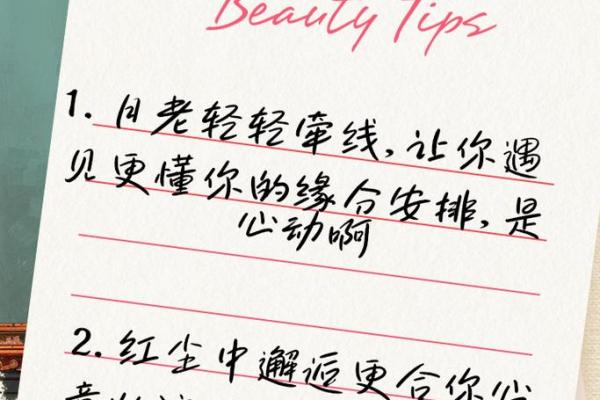 Beauty Tips
1. 月老轻轻牵线,让你遇
见更懂你的缘分安排,是
心动啊
2. 红尘中邂逅更合你心
意